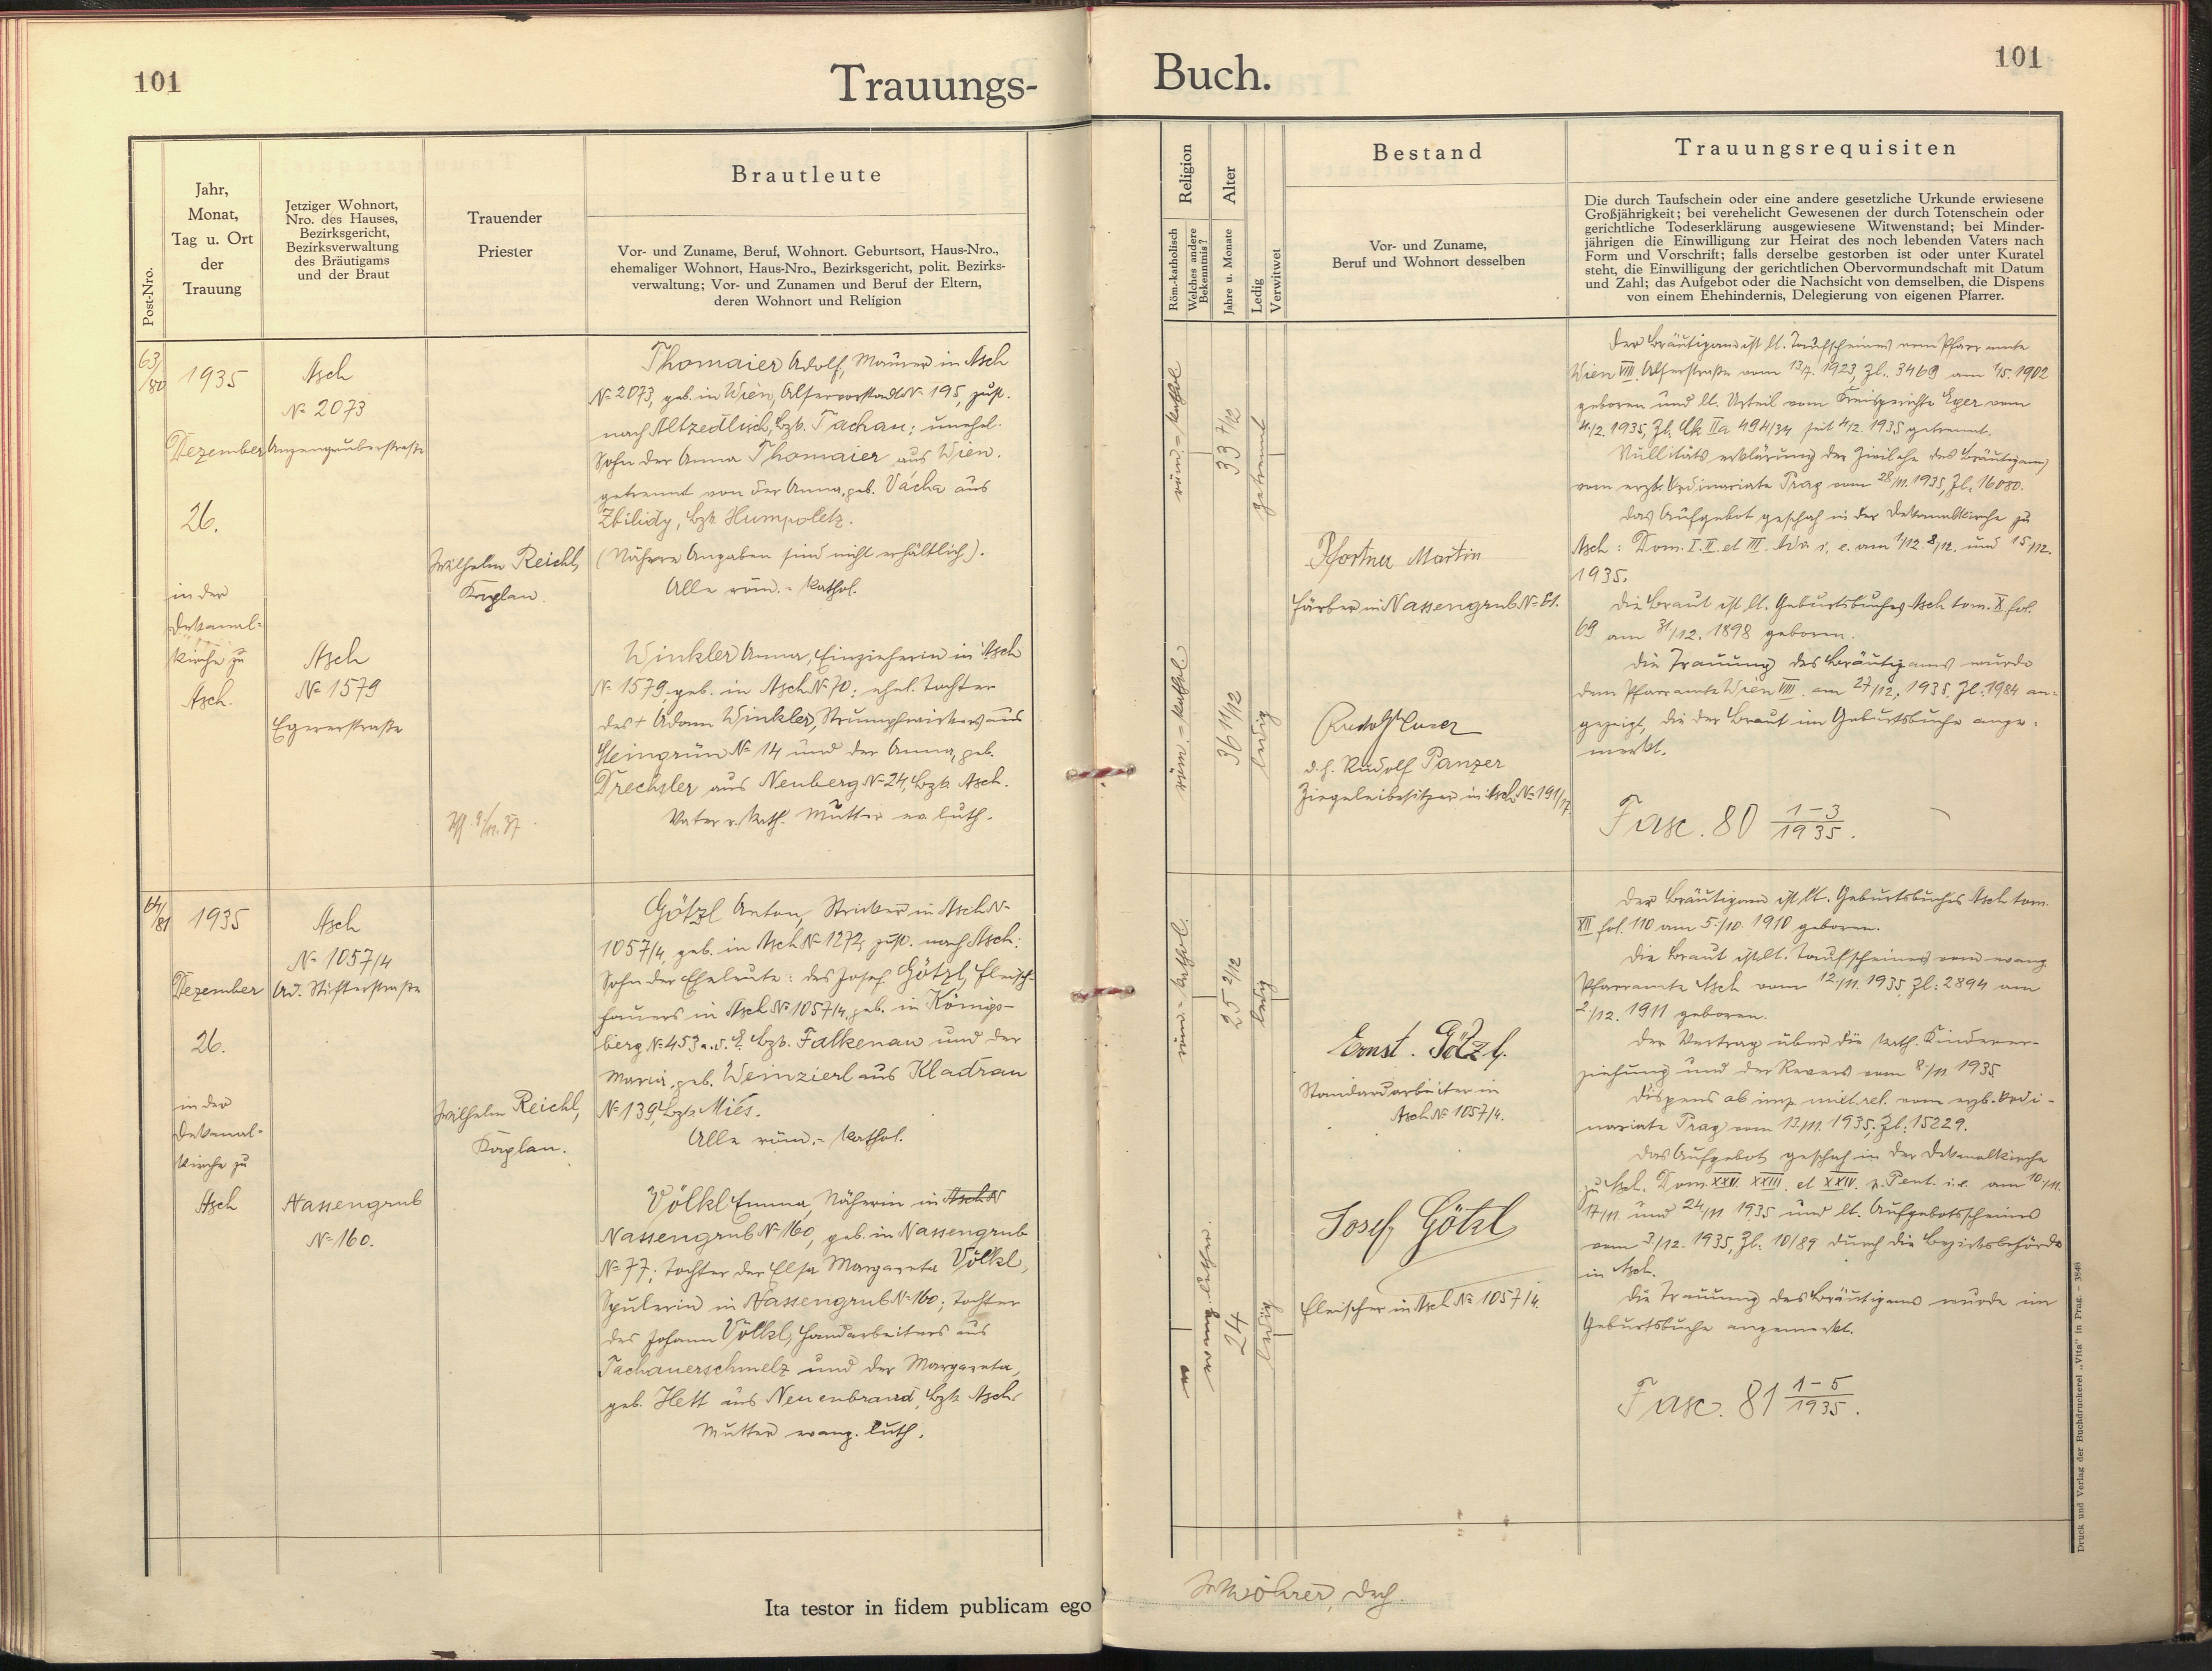 101
Trauungs-
Post-Nro.
Jahr,
Monat,
Tag u. Ort
der
Trauung
Jetziger Wohnort,
Nro. des Hauses,
Bezirksgericht,
Bezirksverwaltung
des Bräutigams
und der Braut
Trauender
Priester
Brautleute
Vor- und Zuname, Beruf, Wohnort. Geburtsort, Haus-Nro.,
ehemaliger Wohnort, Haus-Nro., Bezirksgericht, polit. Bezirks-
verwaltung; Vor- und Zunamen und Beruf der Eltern,
deren Wohnort und Religion
63/80
1935
Dezember
26.
in der
Dekanal-
kirche zu
Asch.
Asch
№ 2073
Anzengruberstraße
Asch
№ 1579
Egererstraße
Wilhelm Reichl,
Kaplan.
Thomaier Adolf, Maurer in Asch
№ 2073, geb. in Wien, Alservorstadt № 195, zust.
nach Altzedlisch, Bzk. Tachau; unehel.
Sohn der Anna Thomaier aus Wien.
getrennt von der Anna, geb. Vácha aus
Zbilidy, Bzk. Humpoletz.
(Nähere Angaben sind nicht erhältlich).
Alle röm.-kathol.
Winkler Anna, Einzieherin in Asch
№ 1579, geb. in Asch № 70; ehel. Tochter
des † Adam Winkler, Strumpfwirkers aus
Steingrün № 14 und der Anna, geb.
Drechsler aus Neuberg № 24, Bzk. Asch.
Vater r. kath. Mutter ev. luth.
64/81
1935
Dezember
26.
in der
Dekanal-
kirche zu
Asch
Asch
№ 1057/4
Ad. Stifterstraße
Nassengrub
№ 160.
Wilhelm Reichl,
Kaplan.
Götzl Anton, Stricker in Asch №
1057/4, geb. in Asch № 1272, zust. nach Asch:
Sohn der Eheleute: des Josef Götzl, Fleisch-
hauers in Asch № 1057/4, geb. in Königs-
berg № 453 a. d. E. Bzk. Falkenau und der
Maria, geb. Weinzierl aus Kladrau
№ 139, Bzk. Mies.
Alle röm.-kathol.
Völkl Emma, Näherin in Asch №
Nassengrub № 160, geb. in Nassengrub
№ 77; Tochter der Elsa Margareta Völkl,
Spulerin in Nassengrub № 160; Tochter
des Johann Völkl, Handarbeiters aus
Tachauerschmelz und der Margareta,
geb. Hett aus Neuenbrand, Bzk. Asch.
Mutter evang. luth.
Ita testor in fidem publicam ego
101
Buch.
Religion
Röm.-katholisch
Welches andere
Bekenntnis?
Alter
Jahre u. Monate
Ledig
Verwitwet
Bestand
Vor- und Zuname,
Beruf und Wohnort desselben
Trauungsrequisiten
Die durch Taufschein oder eine andere gesetzliche Urkunde erwiesene
Großjährigkeit; bei verehelicht Gewesenen der durch Totenschein oder
gerichtliche Todeserklärung ausgewiesene Witwenstand; bei Minder-
jährigen die Einwilligung zur Heirat des noch lebenden Vaters nach
Form und Vorschrift; falls derselbe gestorben ist oder unter Kuratel
steht, die Einwilligung der gerichtlichen Obervormundschaft mit Datum
und Zahl; das Aufgebot oder die Nachsicht von demselben, die Dispens
von einem Ehehindernis, Delegierung von eigenen Pfarrer.
röm.-kathol.
33 7/12
getrennt
röm.-kathol.
36 11/12
ledig
Pfortner Martin
Färber in Nassengrub № 61.
d. h. Rudolf Panzer
Ziegeleibesitzer in Asch № 191/17.
Der Bräutigam ist lt. Taufscheines vom Pfarramte
Wien VIII. Alserstraße vom 13/7. 1923, Zl. 3469 am 7/5. 1902
geboren und lt. Urteil vom Kreisgerichte Eger vom
4./2. 1935, Zl. Ck IIa 494/34 seit 4/2. 1935 getrennt.
Nullitätserklärung der Zivilehe des Bräutigams
vom erzb. Ordinariate Prag vom 28/11. 1935, Zl. 16080.
Das Aufgebot geschah in der Dekanalkirche zu
Asch: Dom. I. II. et III. Adv. i. e. am 1/12. 8/12. und 15/12.
1935.
Die Braut ist lt. Geburtsbuches Asch tom. X fol.
69 am 31/12. 1898 geboren.
Die Trauung des Bräutigams wurde
dem Pfarramte Wien VIII. am 27/12. 1935, Zl. 1984 an-
gezeigt, die der Braut im Geburtsbuche ange-
merkt.
Fasc. 80 1-3/1935.
röm.-kathol.
25 2/12
ledig
evang. luther.
24
ledig
Ernst Götzl.
Standardarbeiter in
Asch № 1057/4.
Josef Götzl
Fleischer in Asch № 1057/4.
Der Bräutigam ist lt. Geburtsbuches Asch tom.
XII fol. 110 am 5./10. 1910 geboren.
Die Braut ist lt. Taufscheines vom evang.
Pfarramte Asch vom 12./11. 1935, Zl: 2894 am
2/12. 1911 geboren.
Der Vertrag über die kath. Kinderer-
ziehung und der Revers vom 8./11 1935
Dispens ab imp. mixt. rel. vom erzb. Ordi-
nariate Prag vom 13/11. 1935, Zl: 15229.
Das Aufgebot geschah in der Dekanalkirche
zu Asch. Dom. XXII. XXIII. et XXIV. p. Pent. i. e. am 10/11.
17/11. und 24/11 1935 und lt. Aufgebotsscheines
vom 3/12. 1935, Zl: 10/89 durch die Bezirksbehörde
in Asch.
Die Trauung des Bräutigams wurde im
Geburtsbuche angemerkt.
Fasc. 81 1-5/1935.
Druck und Verlag der Buchdruckerei „Vita" in Prag. – 3848